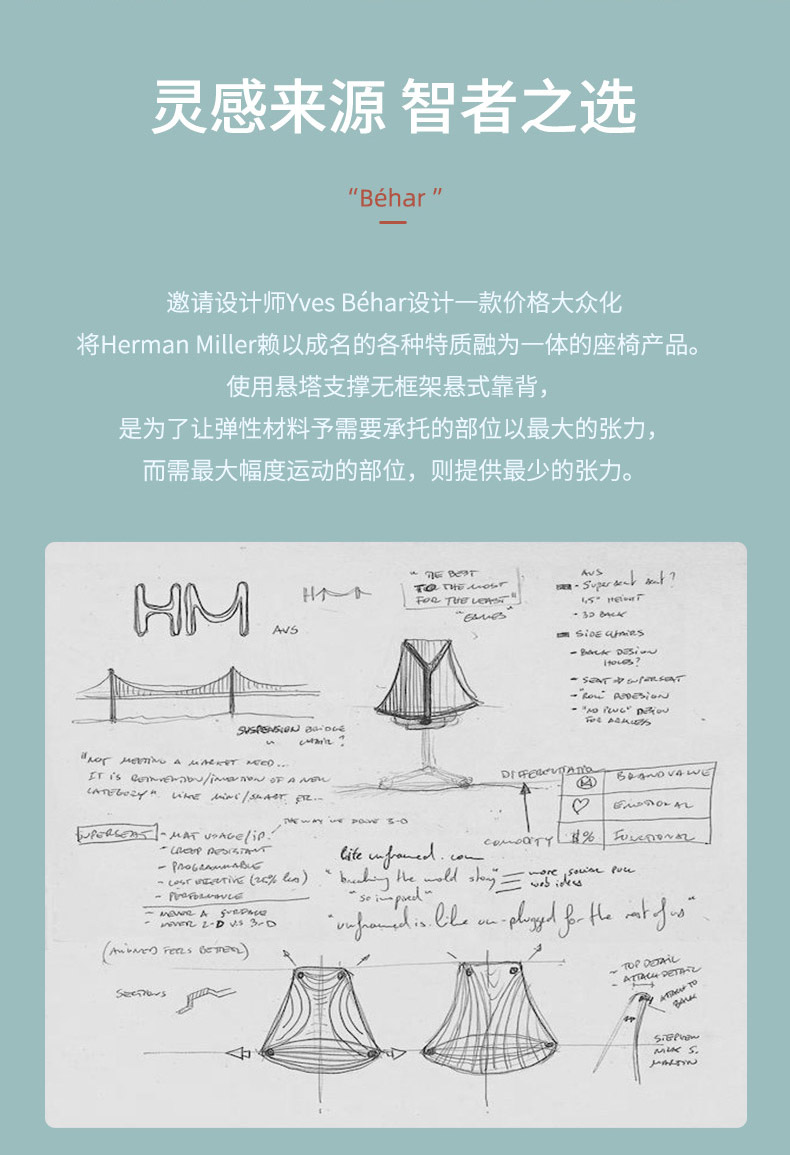 灵感来源 智者之选
“Béhar ”
邀请设计师Yves Béhar设计一款价格大众化
将Herman Miller赖以成名的各种特质融为一体的座椅产品。
使用悬塔支撑无框架悬式靠背，
是为了让弹性材料予需要承托的部位以最大的张力，
而需最大幅度运动的部位，则提供最少的张力。
HM
HM
AVS
"THE BEST
TO THE MOST
FOR THE LEAST"
"EAMES"
AVS
1,5" HEIGHT
- 3D BACK
SIDE CHAIRS
- BACK DESIGN
HOLES?
- "ROLL" REDESIGN
- "NO PLUG" DESIGN
FOR ARMLESS
SUSPENSION BRIDGE
" CHAIR?
"NOT MEETING A MARKET NEED...
IT IS REINVENTION/INVENTION OF A NEW
CATEGORY" LIKE MINI/SMART
DIFFERENTIATION
BRAND VALUE
EMOTIONAL
$% FUNCTIONAL
COMMODITY
SUPERSEAT
- MAT USAGE/IP.
THE WAY WE DO 3-D
- CREEP RESISTANT
- PROGRAMMABLE
- COST EFFECTIVE (25% less)
- PERFORMANCE
- NEVER A SURFACE
- NEVER 2-D VS 3-D
life unframed.com
"breaking the mold story"
more social pull
web ideas
"so inspired"
"unframed is like un-plugged for the rest of us"
(ALIGNED FEELS BETTER)
SECTIONS
- TOP DETAIL
- ATTACH DETAIL
ATTACH TO
BACK
STEPHEN
NICK S.
MARTIN